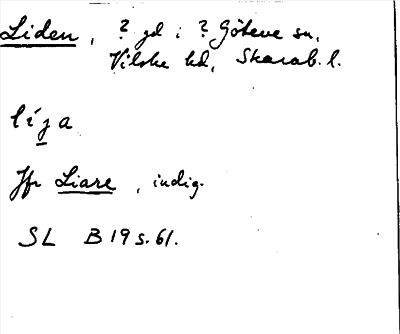 Liden, ? gd i ? Göteve sn,
Vilske hd, Skarab. l.
líʒa
Jfr Liare, indig.
SL B 19 s. 61.